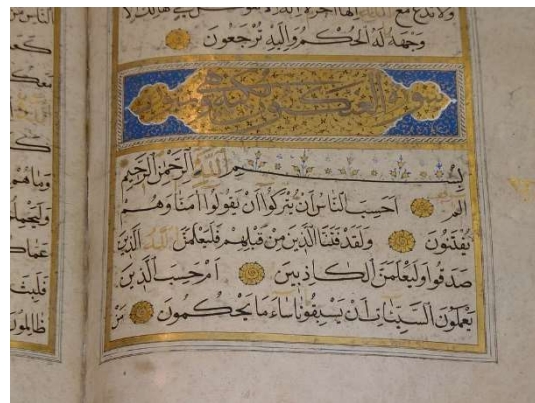 ولا تدع مع الله إلها آخر لا إله إلا هو كل شيء هالك إلا
وجهه له الحكم وإليه ترجعون
سورة العنكبوت
بسم الله الرحمن الرحيم
الم احسب الناس أن يتركوا أن يقولوا آمنا وهم
يفتنون ولقد فتنا الذين من قبلهم فليعلمن الله الذين
صدقوا وليعلمن الكاذبين أم حسب الذين
يعملون السيئات أن يسبقونا ساء ما يحكمون من